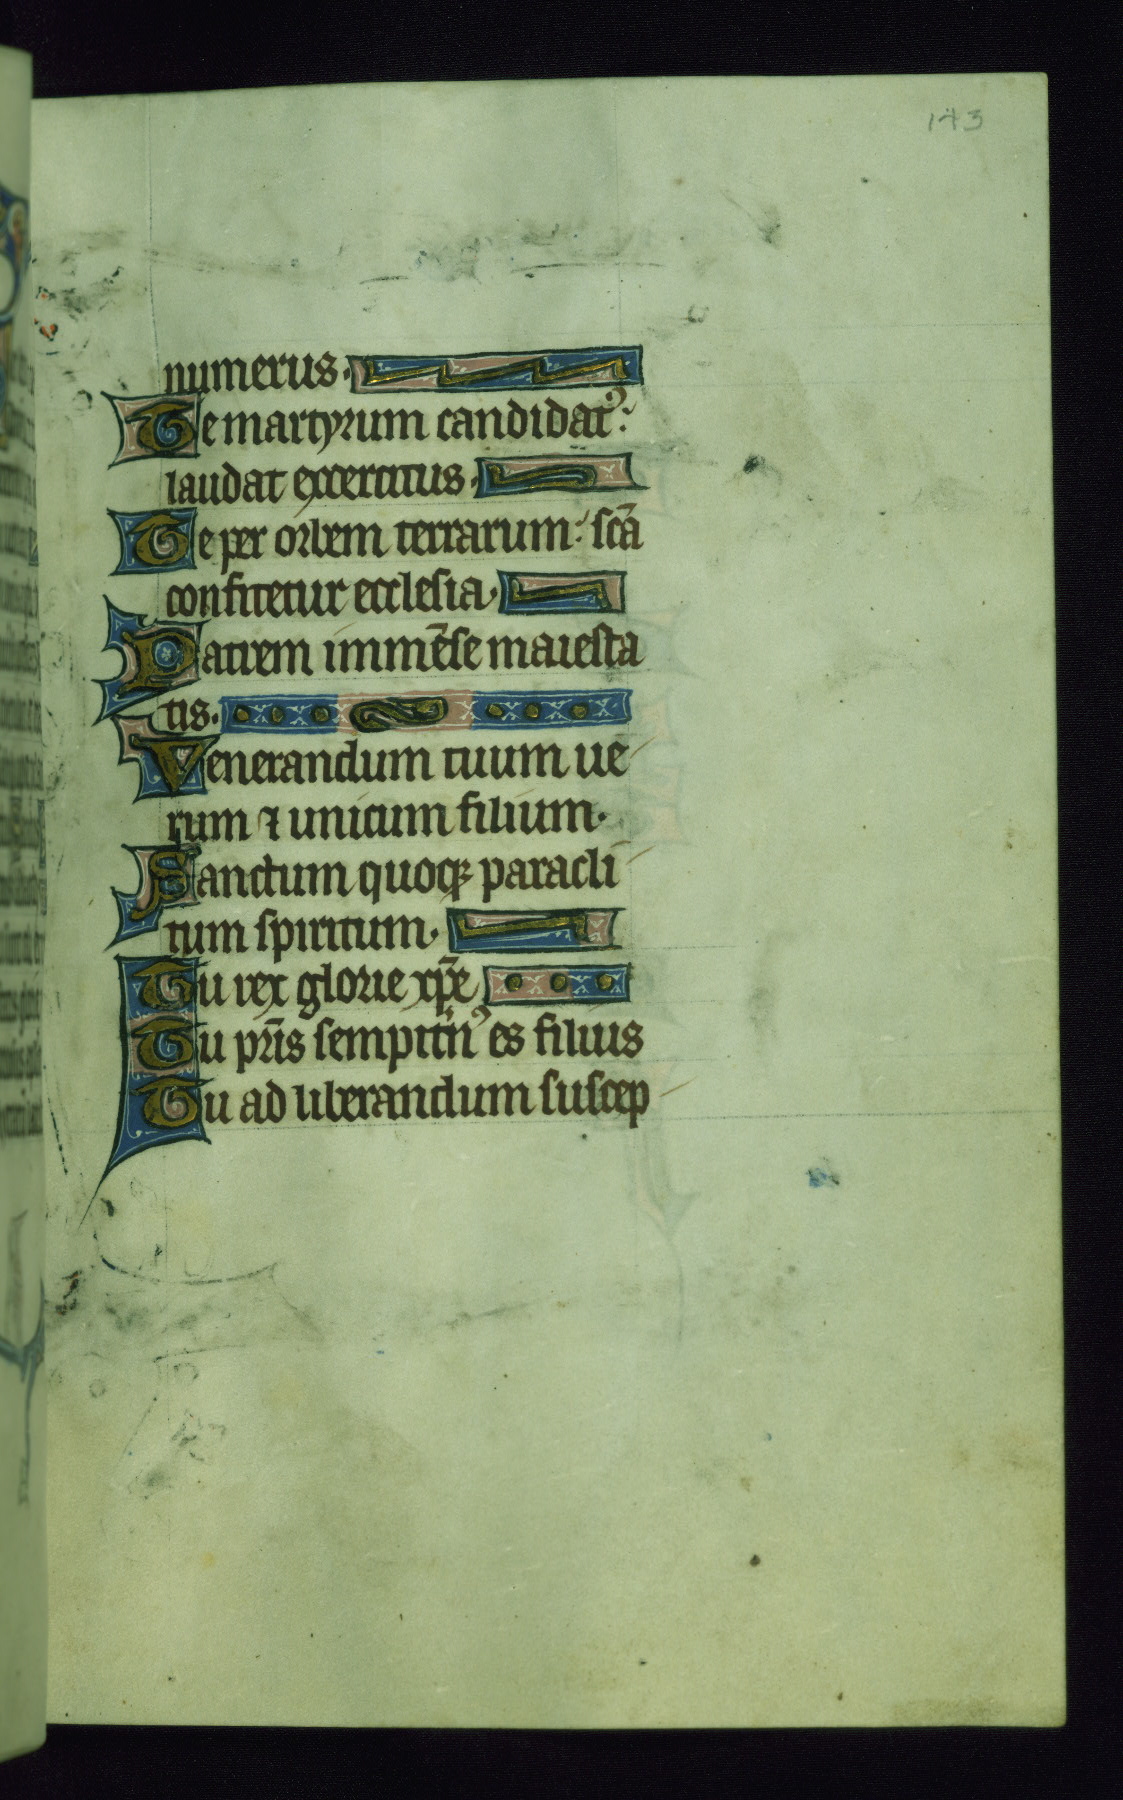 143
numerus.
Te martyrum candidatꝰ:
laudat excercitus.
Te per orbem terrarum: scā
confitetur ecclesia.
Patrem immēse maiesta
tis.
Venerandum tuum ue
rum ⁊ unicum filium.
Sanctum quoqꝫ paracli
tum spiritum.
Tu rex glorie xp̄e
Tu pr̄is sempit̄nꝰ es filius
Tu ad liberandum suscep